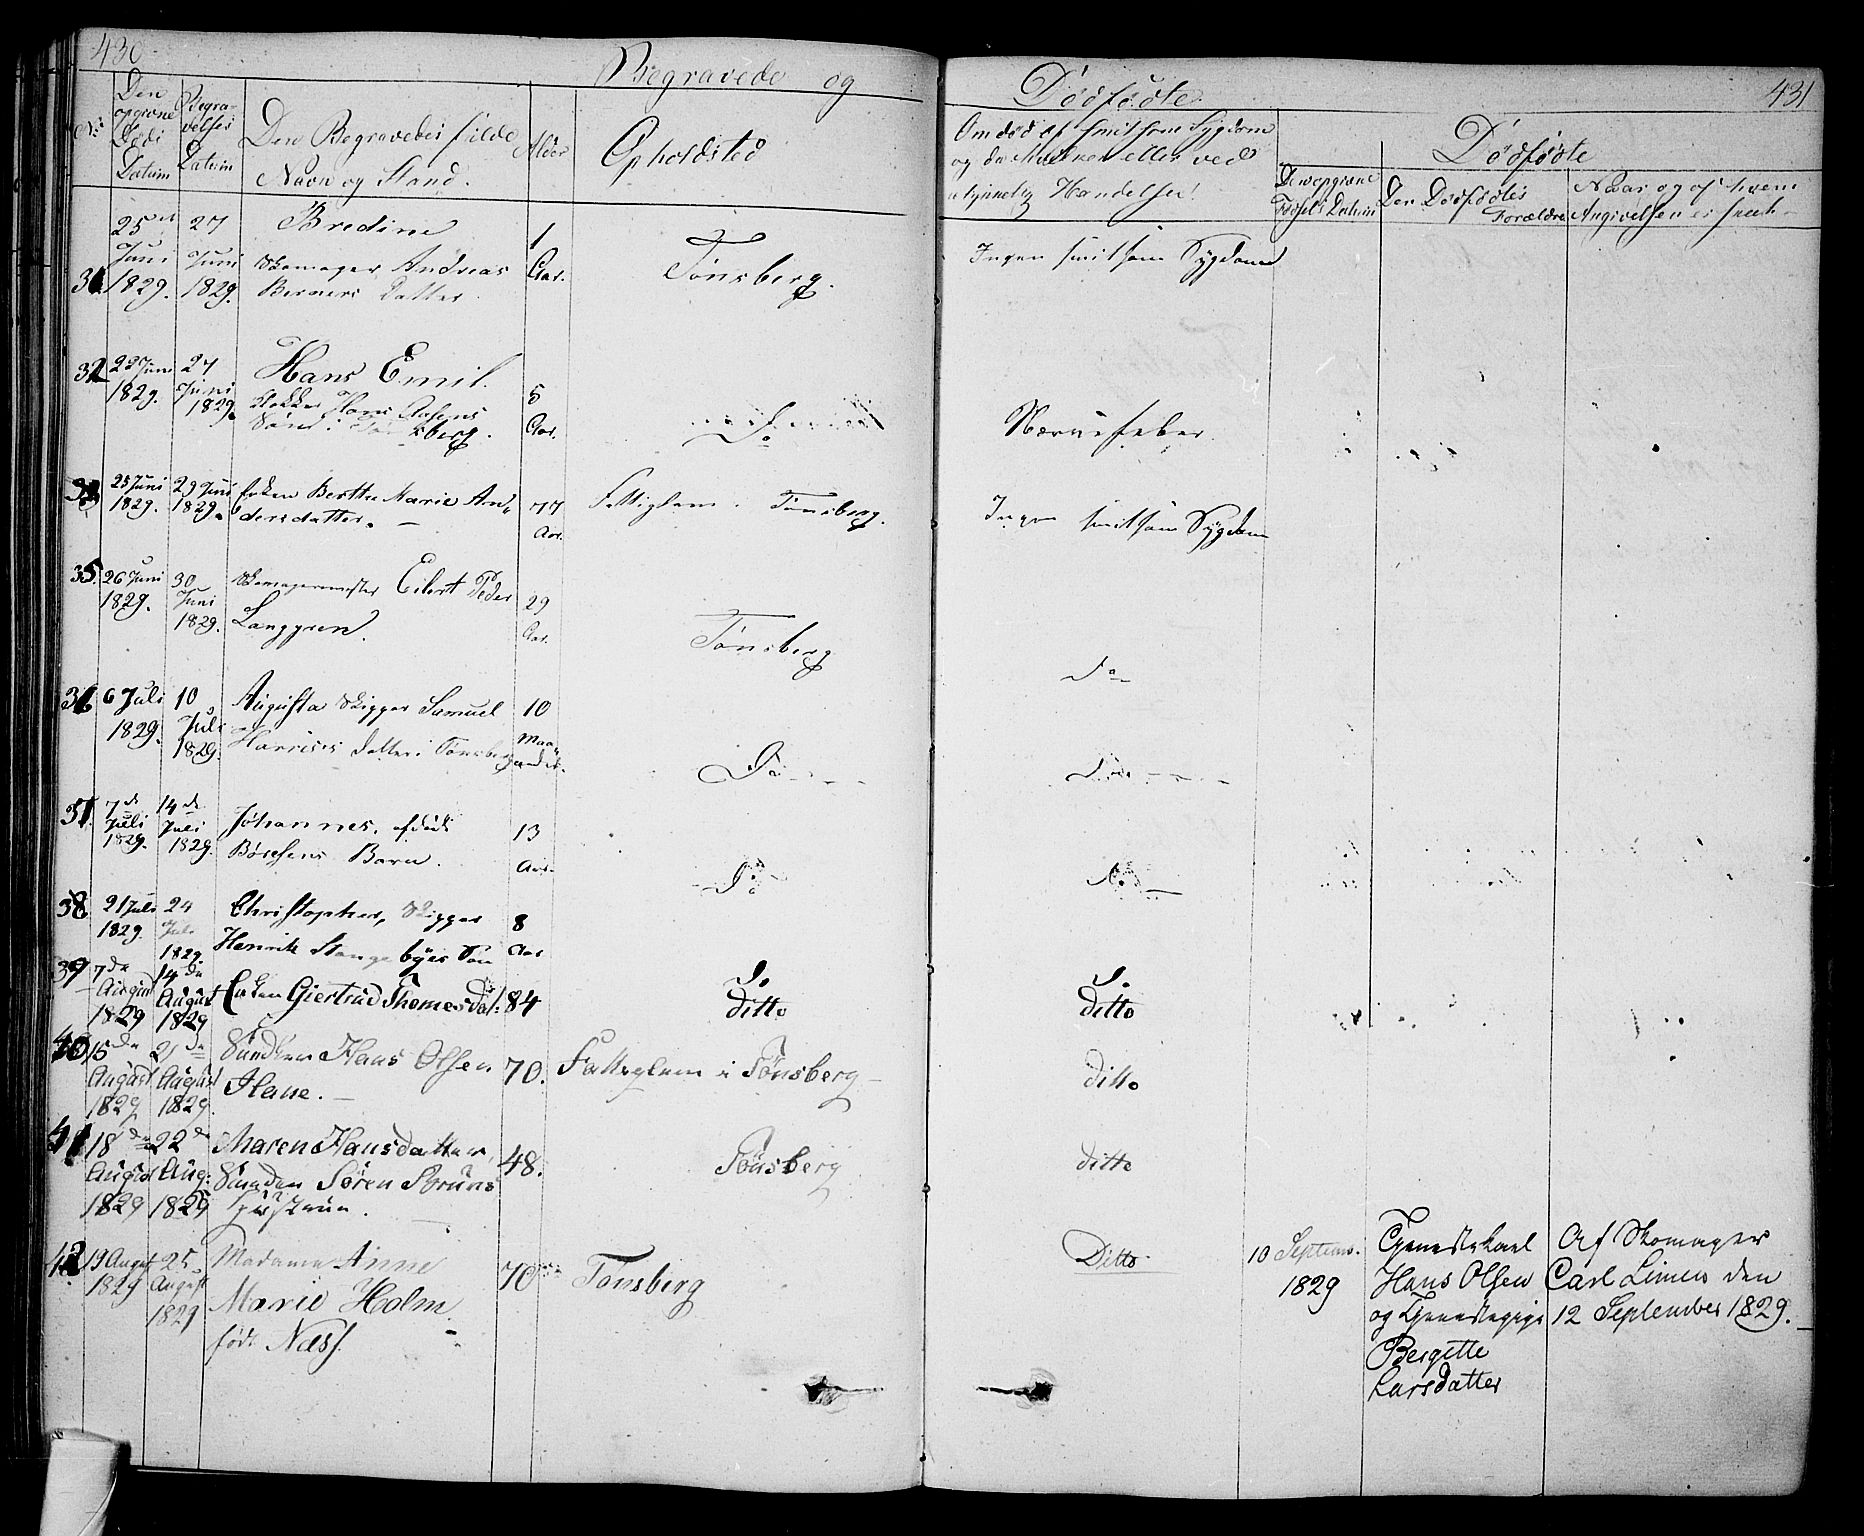 430
Begravede og
Den opgivne Døds Datum
Begravelses Datum
Den Begravedes fulde
Navn og Stand.
Alder
Opholdsted
Dødfødte
431
Om død af smitsom Sygdom
og da hvilken eller ved
ulykkelig Hændelse!
Dødfødte
Den opgivne
Fødsels Datum
Den Dødfødtes
Forældre
Naar og af hvem
Angivelsen er skeet
25 27 Bredine 1
Juni Juni Skomager Andreas Aar. Tønsberg. Ingen smitsom Sygdom
31 1829. 1829. Berners Datter
32 23 Juni 27 Hans Emil.
1829. Juni 1829. Hans Olsens 5 Do Nervefeber.
Søn i Tønsberg. Aar.
33 25 Juni 29 Juni Enken Berthe Marie An- 77 Fattiglem i Tønsberg. Ingen smitsom Sygdom
1829. 1829. dersdatter. Aar.
35. 26 Juni 30 Skomagermester Eilert Peder 29
1829. Juni 1829. Langgren. Aar. Tønsberg Do
36 6 Juli 10 Augusta Skipper Samuel 10
1829. Juli 1829. Harrises Datter i Tønsberg Maaneder. Do Do
37. 7de 14de Johannes, afdøde 13
Juli 1829. Juli 1829. Børesens Barn. Aar. Do Do
38 21 Juli 24 Christopher, Skipper 8
1829. Juli 1829. Henrik Stangebyes Søn Aar Do Do
39 7de 14de Enken Giertrud Thomesdat: 84 ditto ditto
August 1829 August 1829
40 15de 21de Hans Olsen 70. Fattiglem i Tønsberg ditto
August 1829 August 1829. Hane.
41 18de 22de Maren Hansdatter, 48. Tønsberg ditto
August 1829 Aug: 1829 Søren Bruns
Hustrue.
42 19 August 25 Madame Anne 70 Tønsberg Ditto
1829 August 1829 Marie Holm
født Næss.
10 Septemb. 1829
Tjenestekarl
Hans Olsen
og Tjenestepige
Bergette
Larsdatter
Af Skomager
Carl Limen den
12 September 1829.